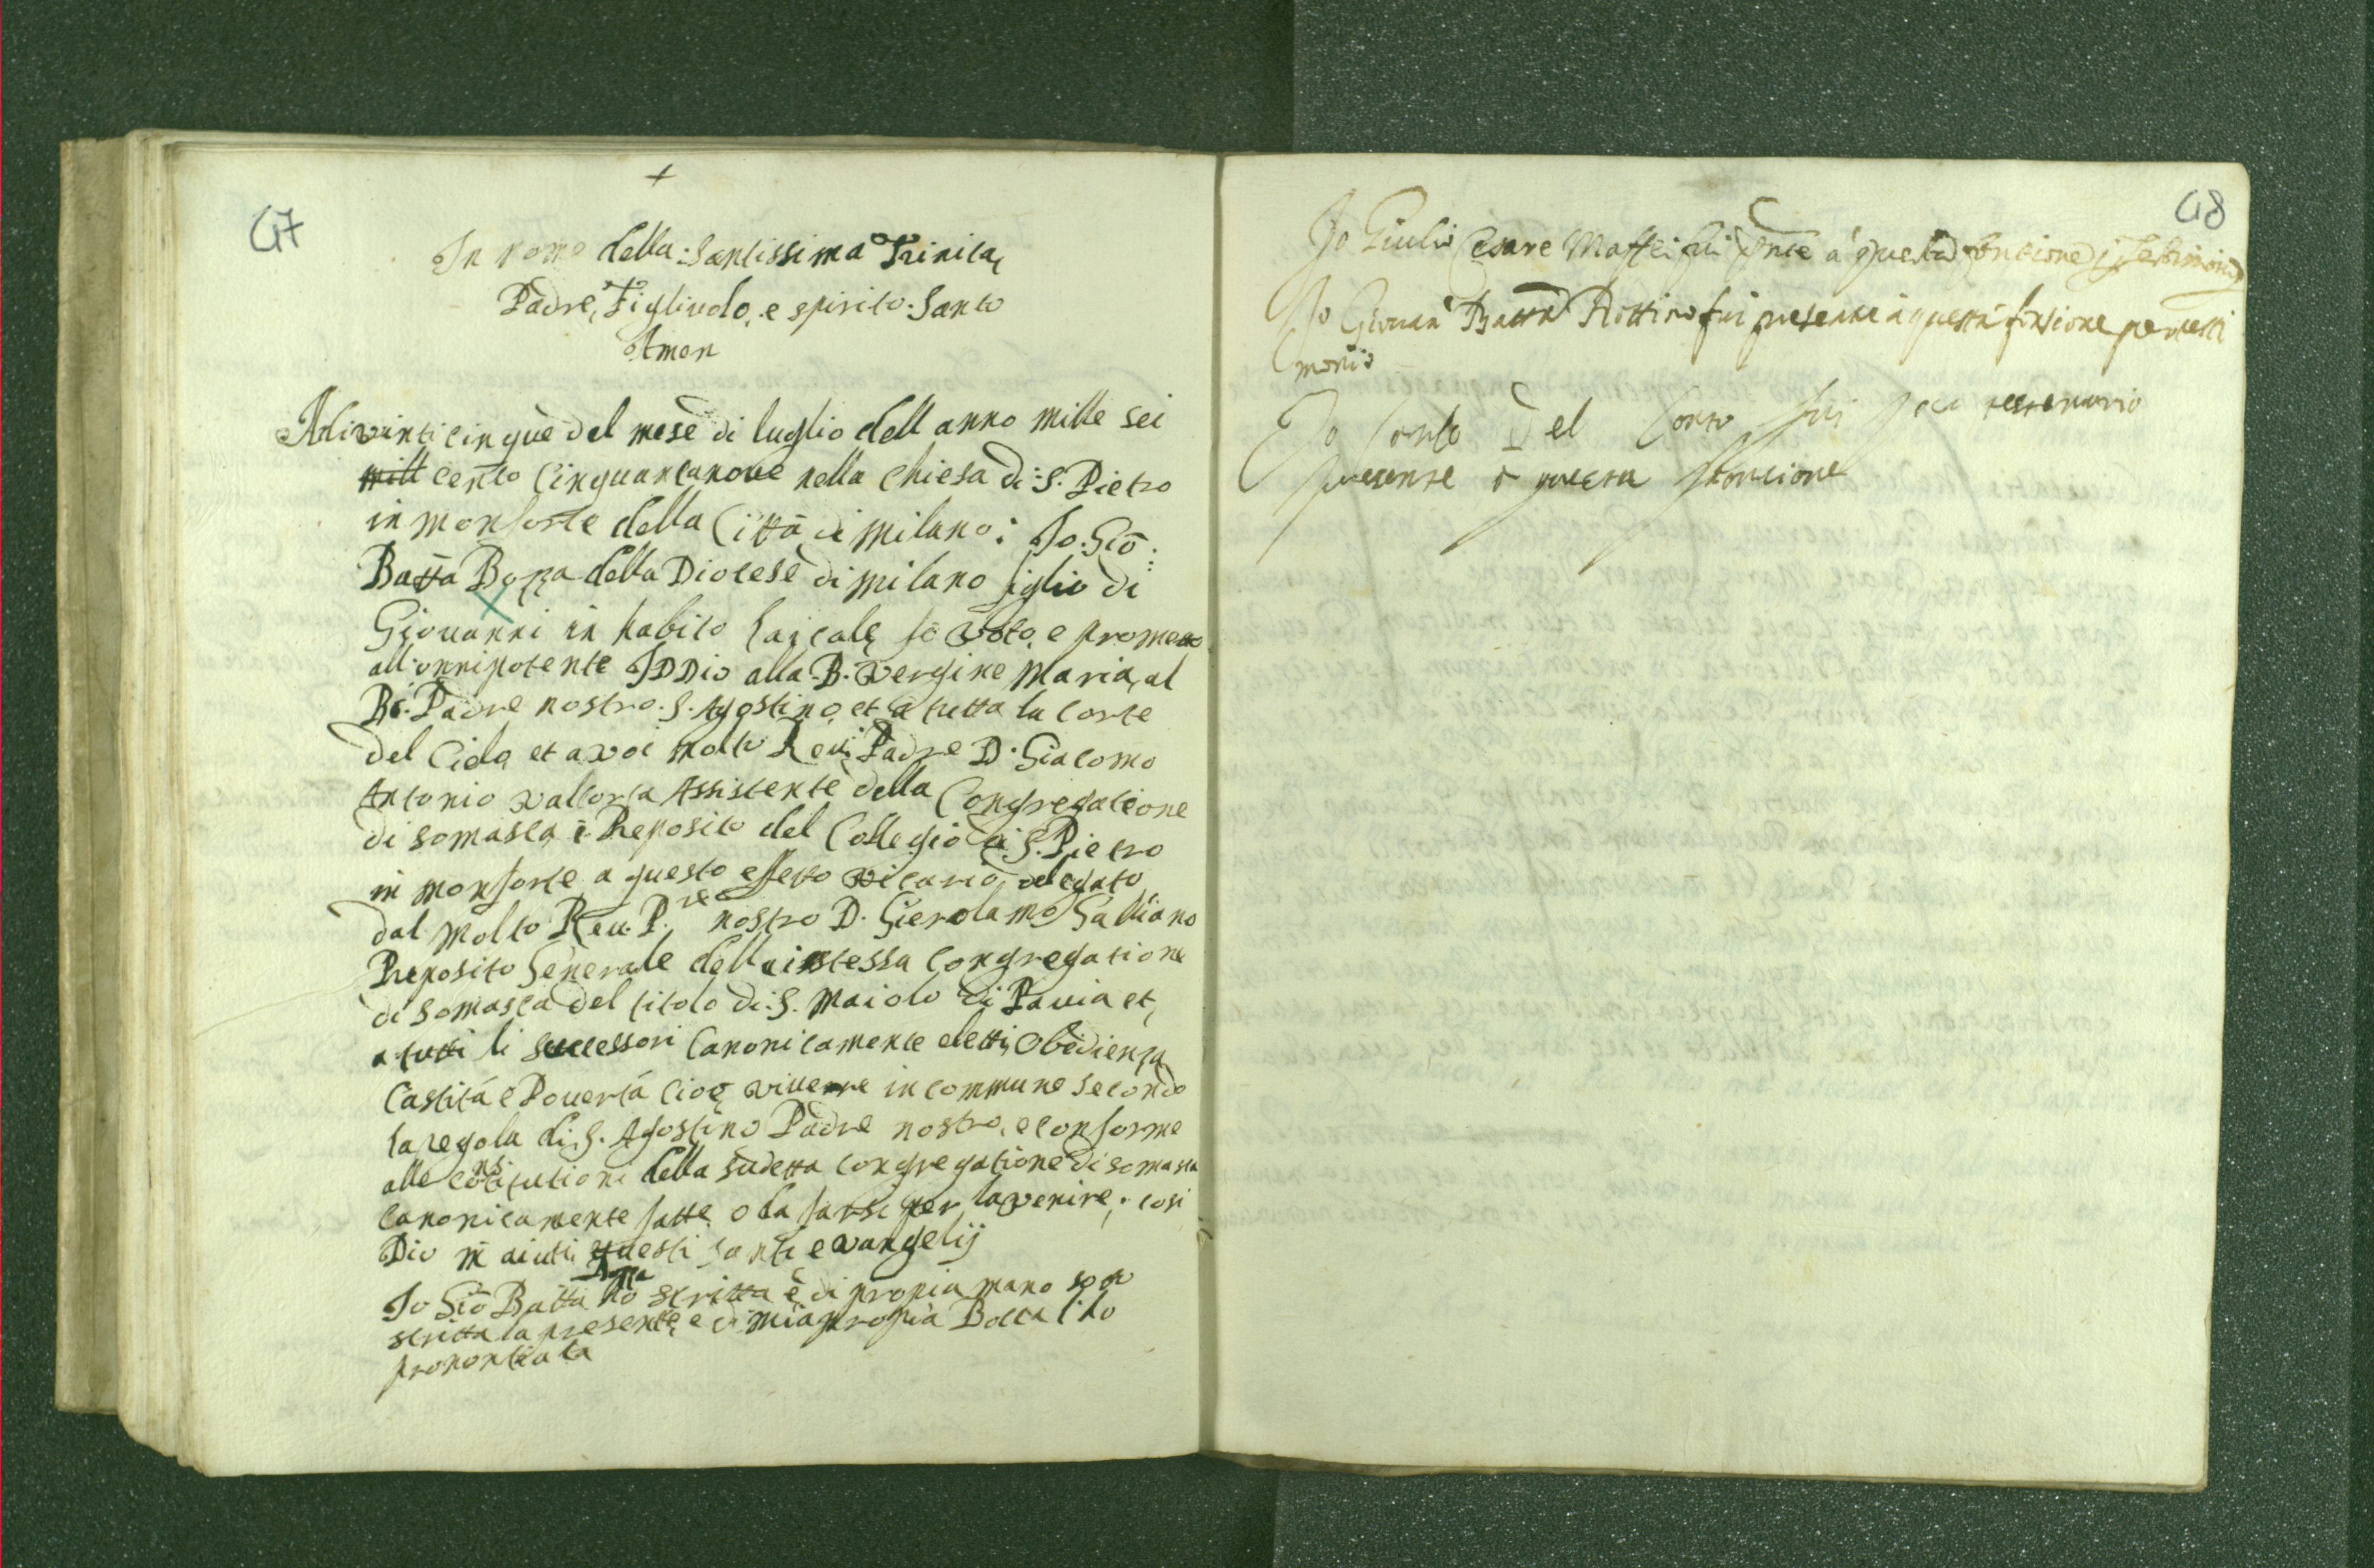 +
47
In nome della Santissima Trinita,
Padre, Figliuolo, e spirito Santo
Amen
Adi vinti cinque del mese di luglio dell anno mille sei
mill cento Cinquantanove nella Chiesa di S. Pietro
in monforte della Città di Milano: Io Giō:
Batta Boza della Diocese di milano figlio di
Giouanni in habito laicale fo voto, e prometto
all'onnipotente IDDio alla B. vergine Maria, al
B. Padre nostro S. Agostino, et a tutta la Corte
del Cielo et a voi molto Reu. Padre D. Giacomo
Antonio Valtorta Assistente della Congregatione
di somasca e Preposito del Collegio di S. Pietro
in monforte a questo effetto vicario, delegato
dal Molto Reu. P.re nostro D. Gierolamo Galliano
Preposito Generale della istessa Congregatione
di somasca del titolo di S. Maiolo di Pauia et,
a tutti li successori Canonicamente eletti, Obedienza
Castitá e Pouertá cioe viuere in commune secondo
la regola di S. Agostino Padre nostro, e conforme
alle constitutioni della sudetta congregatione di somasca
canonicamente fatte o da farsi per lavenire; cosi
Dio m̄ aiuti questi santi evangelij
Io Giō Batta Boza hò scritta è di propria mano soto
scritta la presente, e di mia propria Bocca l'ho
pronontiata
48
Io Giulio Cesare Maffei fui pn̄te a questa fontione p testimonio
Io Giouan Batta Rottino fui presente a questa fonsione per testi
monio
Io Carlo Del Conto fui testimonio
presente a questa fontione